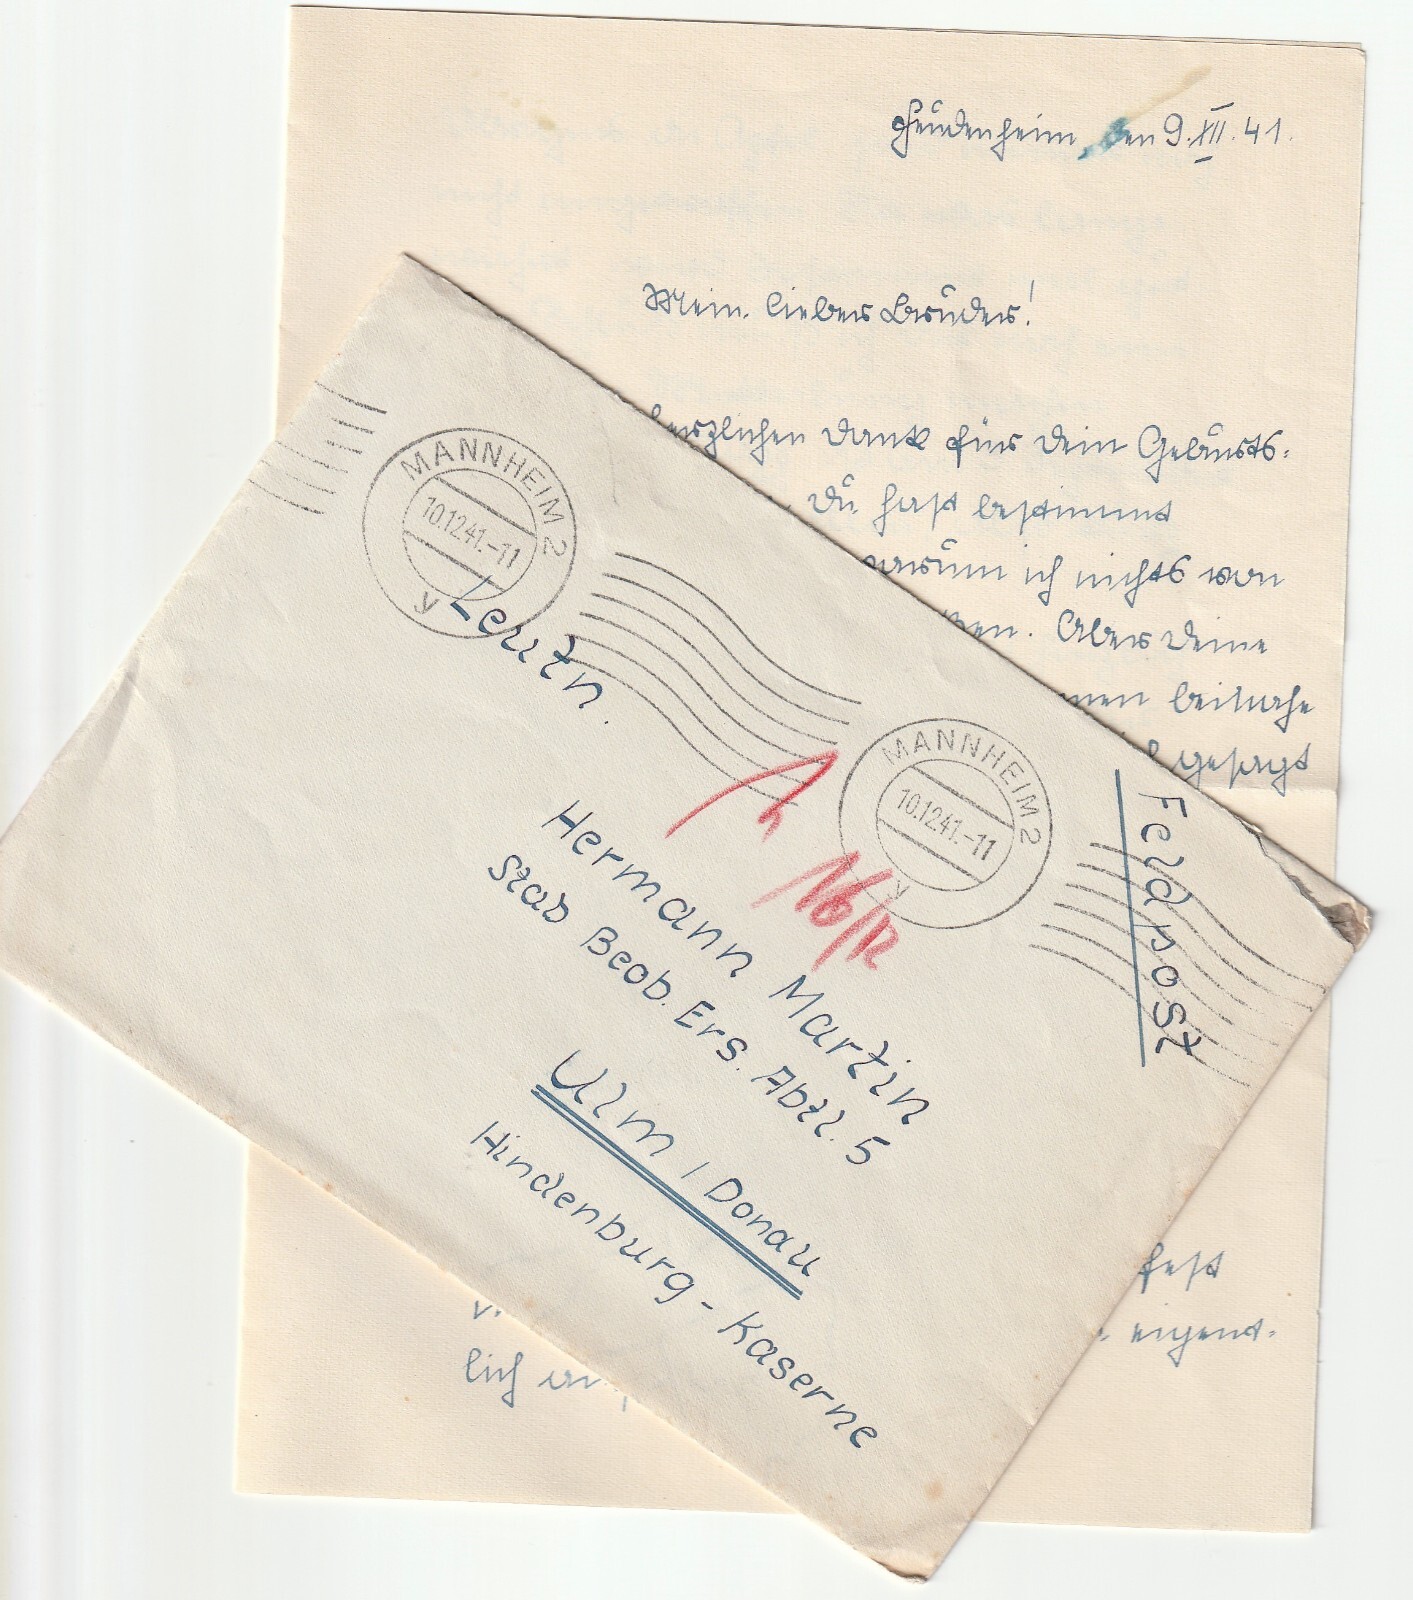 Feudenheim, den 9. XII. 41.
Mein lieber Bruder!
herzlichen Dank für Dein Geburts-
Du hast bestimmt
warum ich nichts von
Aber Deine
beinahe
gesagt
fest
eigent-
lich
MANNHEIM 2
10.12.41.-11
y
MANNHEIM 2
10.12.41.-11
y
Feldpost
Leutn.
16/12
Hermann Martin
Stab Beob. Ers. Abtl. 5
Ulm / Donau
Hindenburg-Kaserne